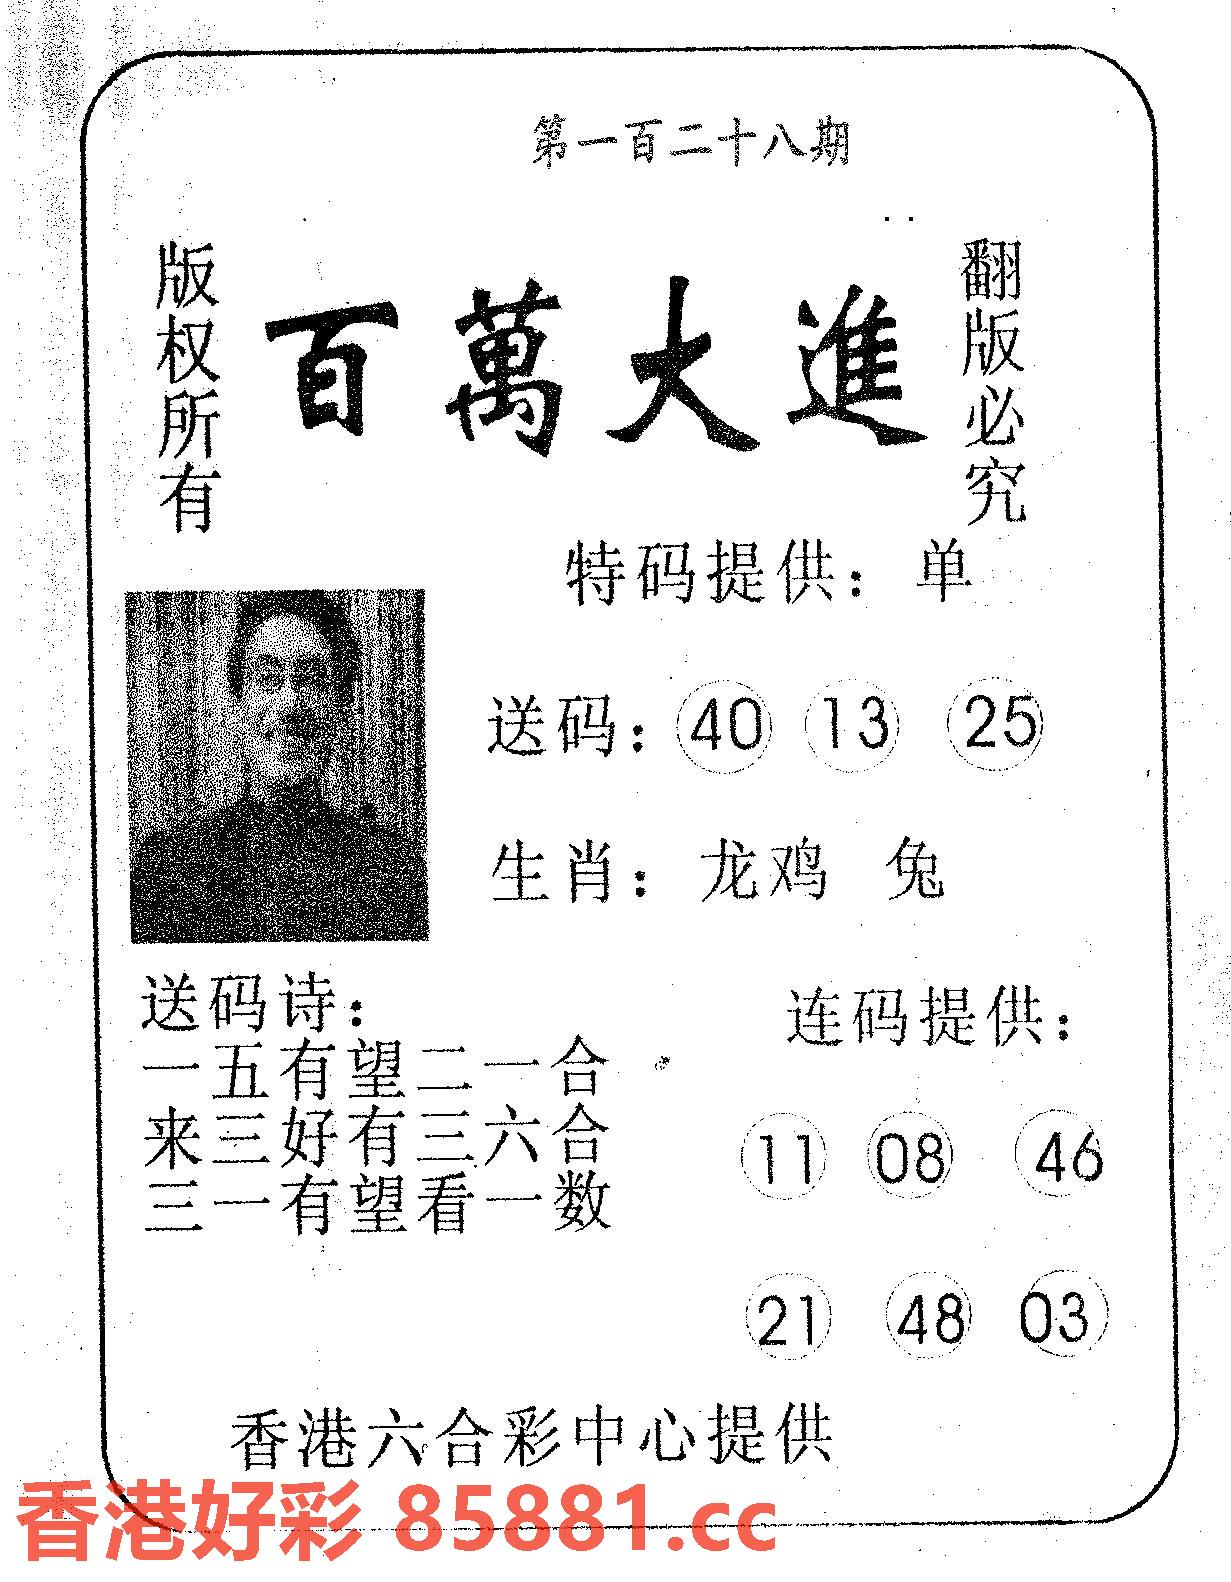 第一百二十八期
版权所有
百萬大進
翻版必究
特码提供：单
送码：40 13 25
生肖：龙鸡 兔
送码诗：
一五有望二一合
来三好有三六合
三一有望看一数
连码提供：
11 08 46
21 48 03
香港六合彩中心提供
香港好彩 85881.cc